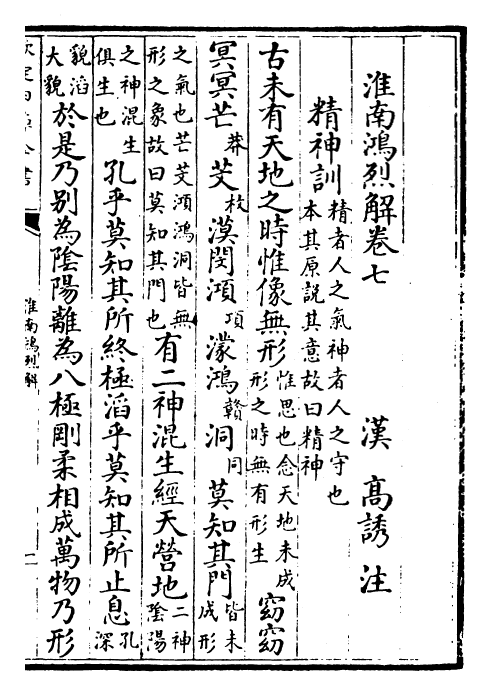 淮南鴻烈解卷七
漢 髙誘 注
精神訓精者人之氣神者人之守也本其原說其意故曰精神
古未有天地之時惟像無形惟思也念天地未成形之時無有形生窈窈
冥冥芒莽芠枚漠閔澒項濛鴻贛洞同莫知其門皆未成形
之氣也芒芠澒鴻洞皆無形之象故曰莫知其門也有二神混生經天營地二神陰陽
之神混生俱生也孔乎莫知其所終極滔乎莫知其所止息孔深
貌滔大貌於是乃别為陰陽離為八極剛柔相成萬物乃形
淮南鴻烈解